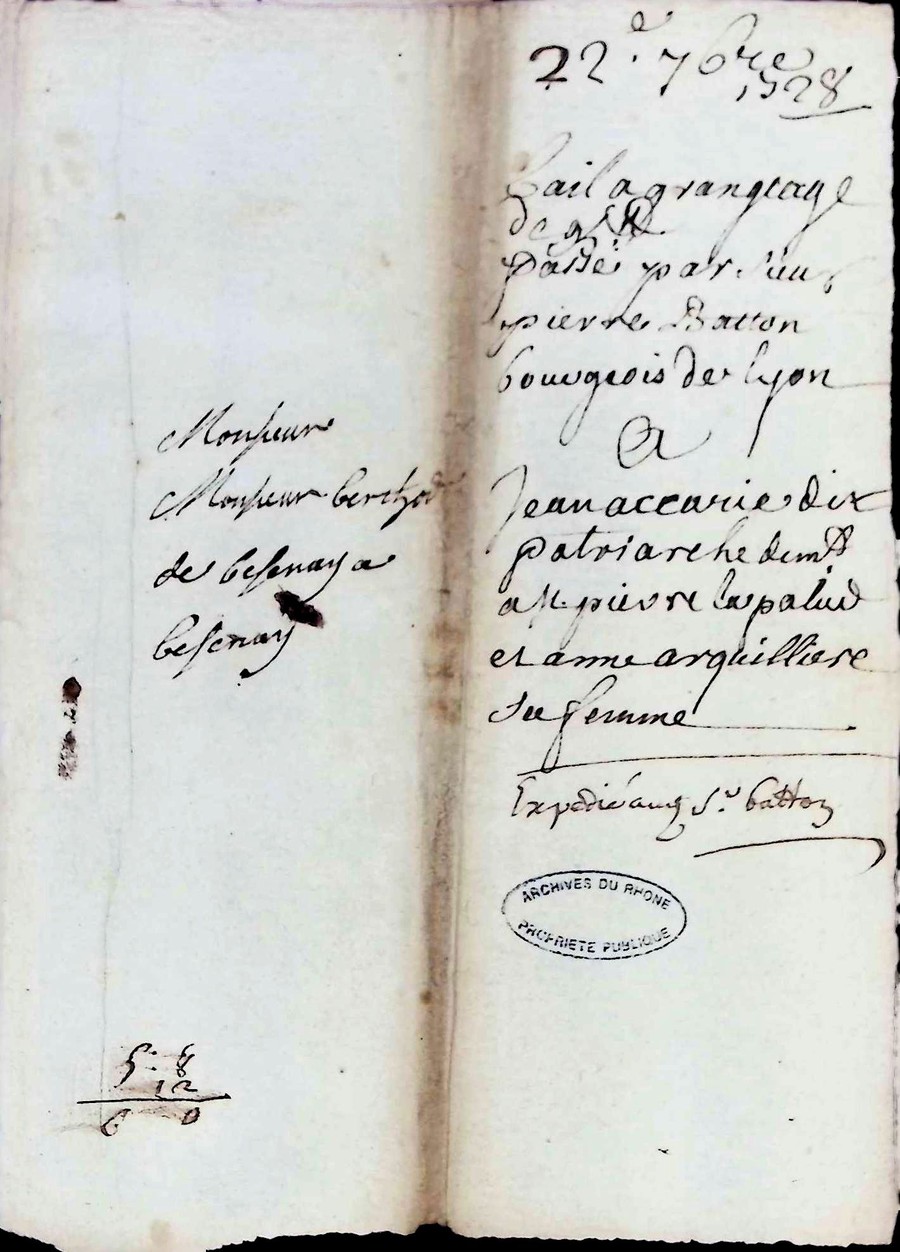 Monsieur
Monsieur berthod
de besenay a
besenay
5. 8
12
6 0
22e. 7bre
1728
bail a grangeage
de
passé par sieur
pierre Batton
bourgeois de lyon
A
Jean accarie dix
patriarche demt
a st pierre la palud
et anne arquilliere
sa femme
Expedié aud sr. batton
ARCHIVES DU RHONE
PROPRIETE PUBLIQUE